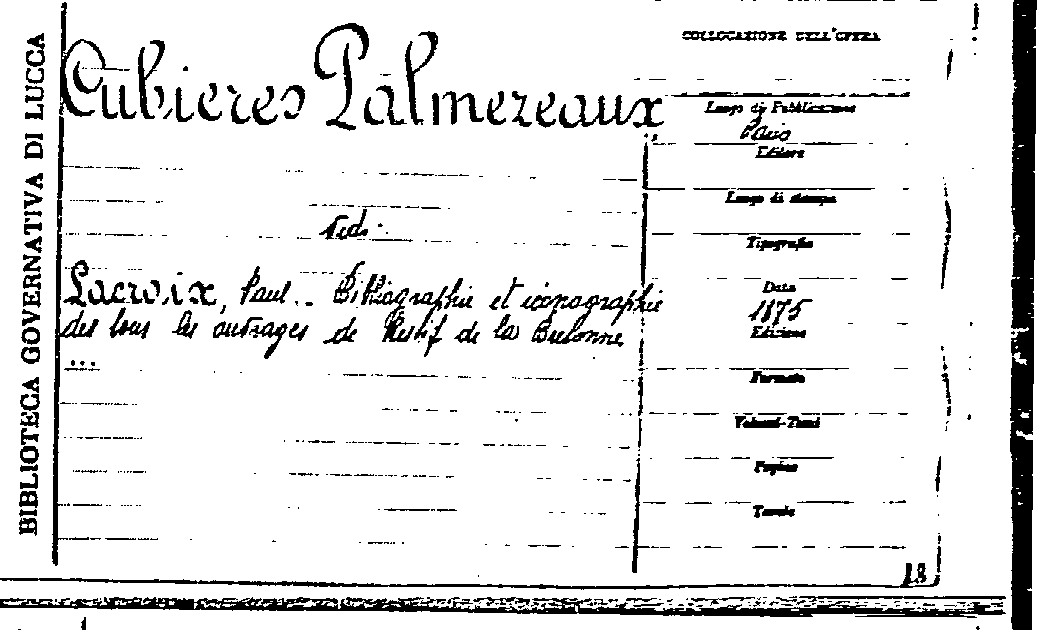 BIBLIOTECA GOVERNATIVA DI LUCCA
Cubieres Palmezeaux
Ved.
Lacroix, Paul. - Bibliographie et iconographie
des tous les outrages de Restif de la Bretonne
...
COLLOCAZIONE DELL'OPERA
Luogo di Pubblicazione
Paris
Editore
Luogo di stampa
Tipografia
Data
1875
Edizione
Formato
Volumi-Tomi
Pagine
Tavole
18